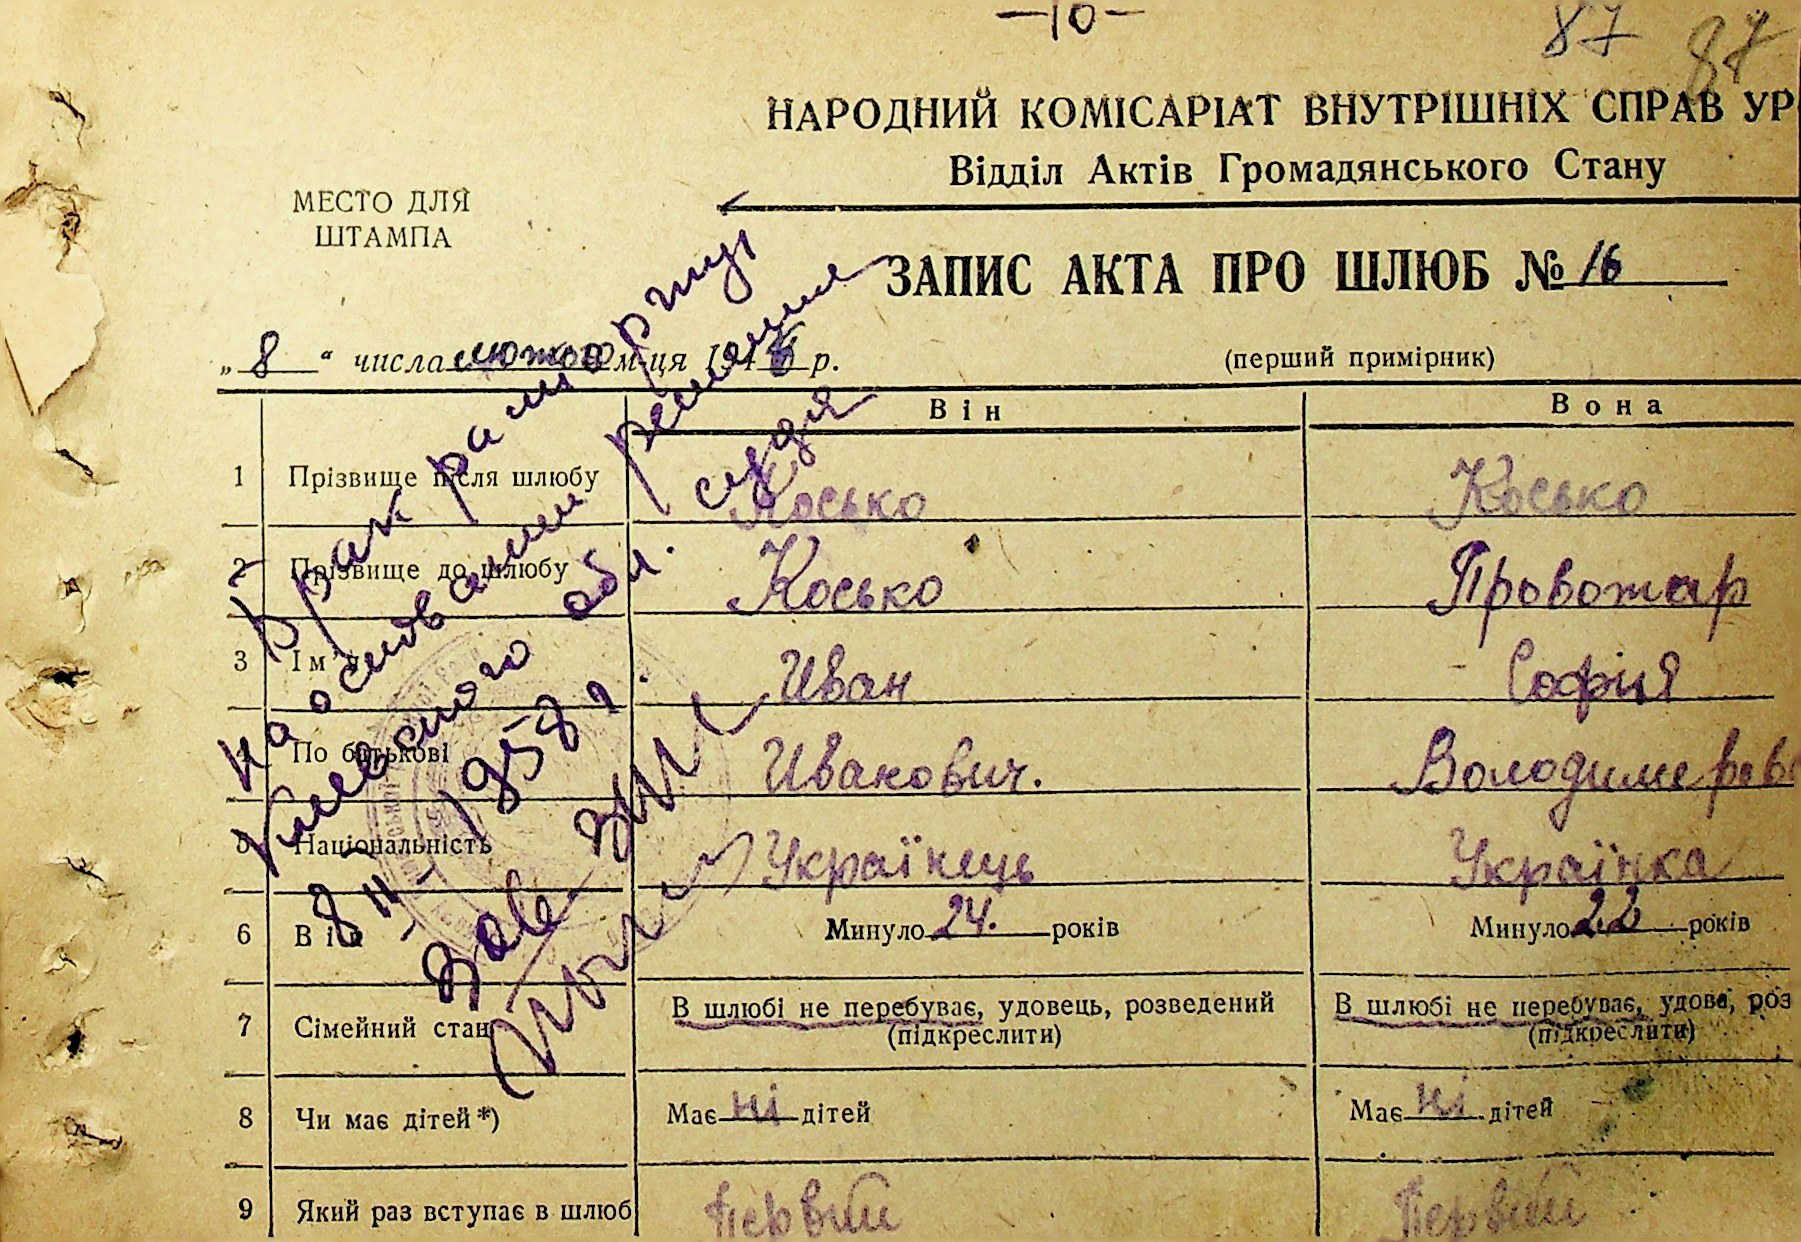 —10—
87 87
НАРОДНИЙ КОМІСАРІАТ ВНУТРІШНІХ СПРАВ УР
Відділ Актів Громадянського Стану
МЕСТО ДЛЯ
ШТАМПА
ЗАПИС АКТА ПРО ШЛЮБ № 16
„ 8 “ числа лютого м-ця 194 р.
(перший примірник)
Він Вона
1 Прізвище після шлюбу Косько Косько
2 Прізвище до шлюбу Косько Провожар
3 Ім'я Иван София
4 По батькові Иванович. Володимерев
5 Національність Українець Українка
6 Вік Минуло 24. років Минуло 22 років
7 Сімейний стан В шлюбі не перебуває, удовець, розведений В шлюбі не перебуває, удова, роз
(підкреслити) (підкреслити)
8 Чи має дітей *) Має ні дітей Має ні дітей
9 Який раз вступає в шлюб Первий Первий
Брак расторгнут
на основании решения
Киевского обл. суда
1958 г.
Зав. загс